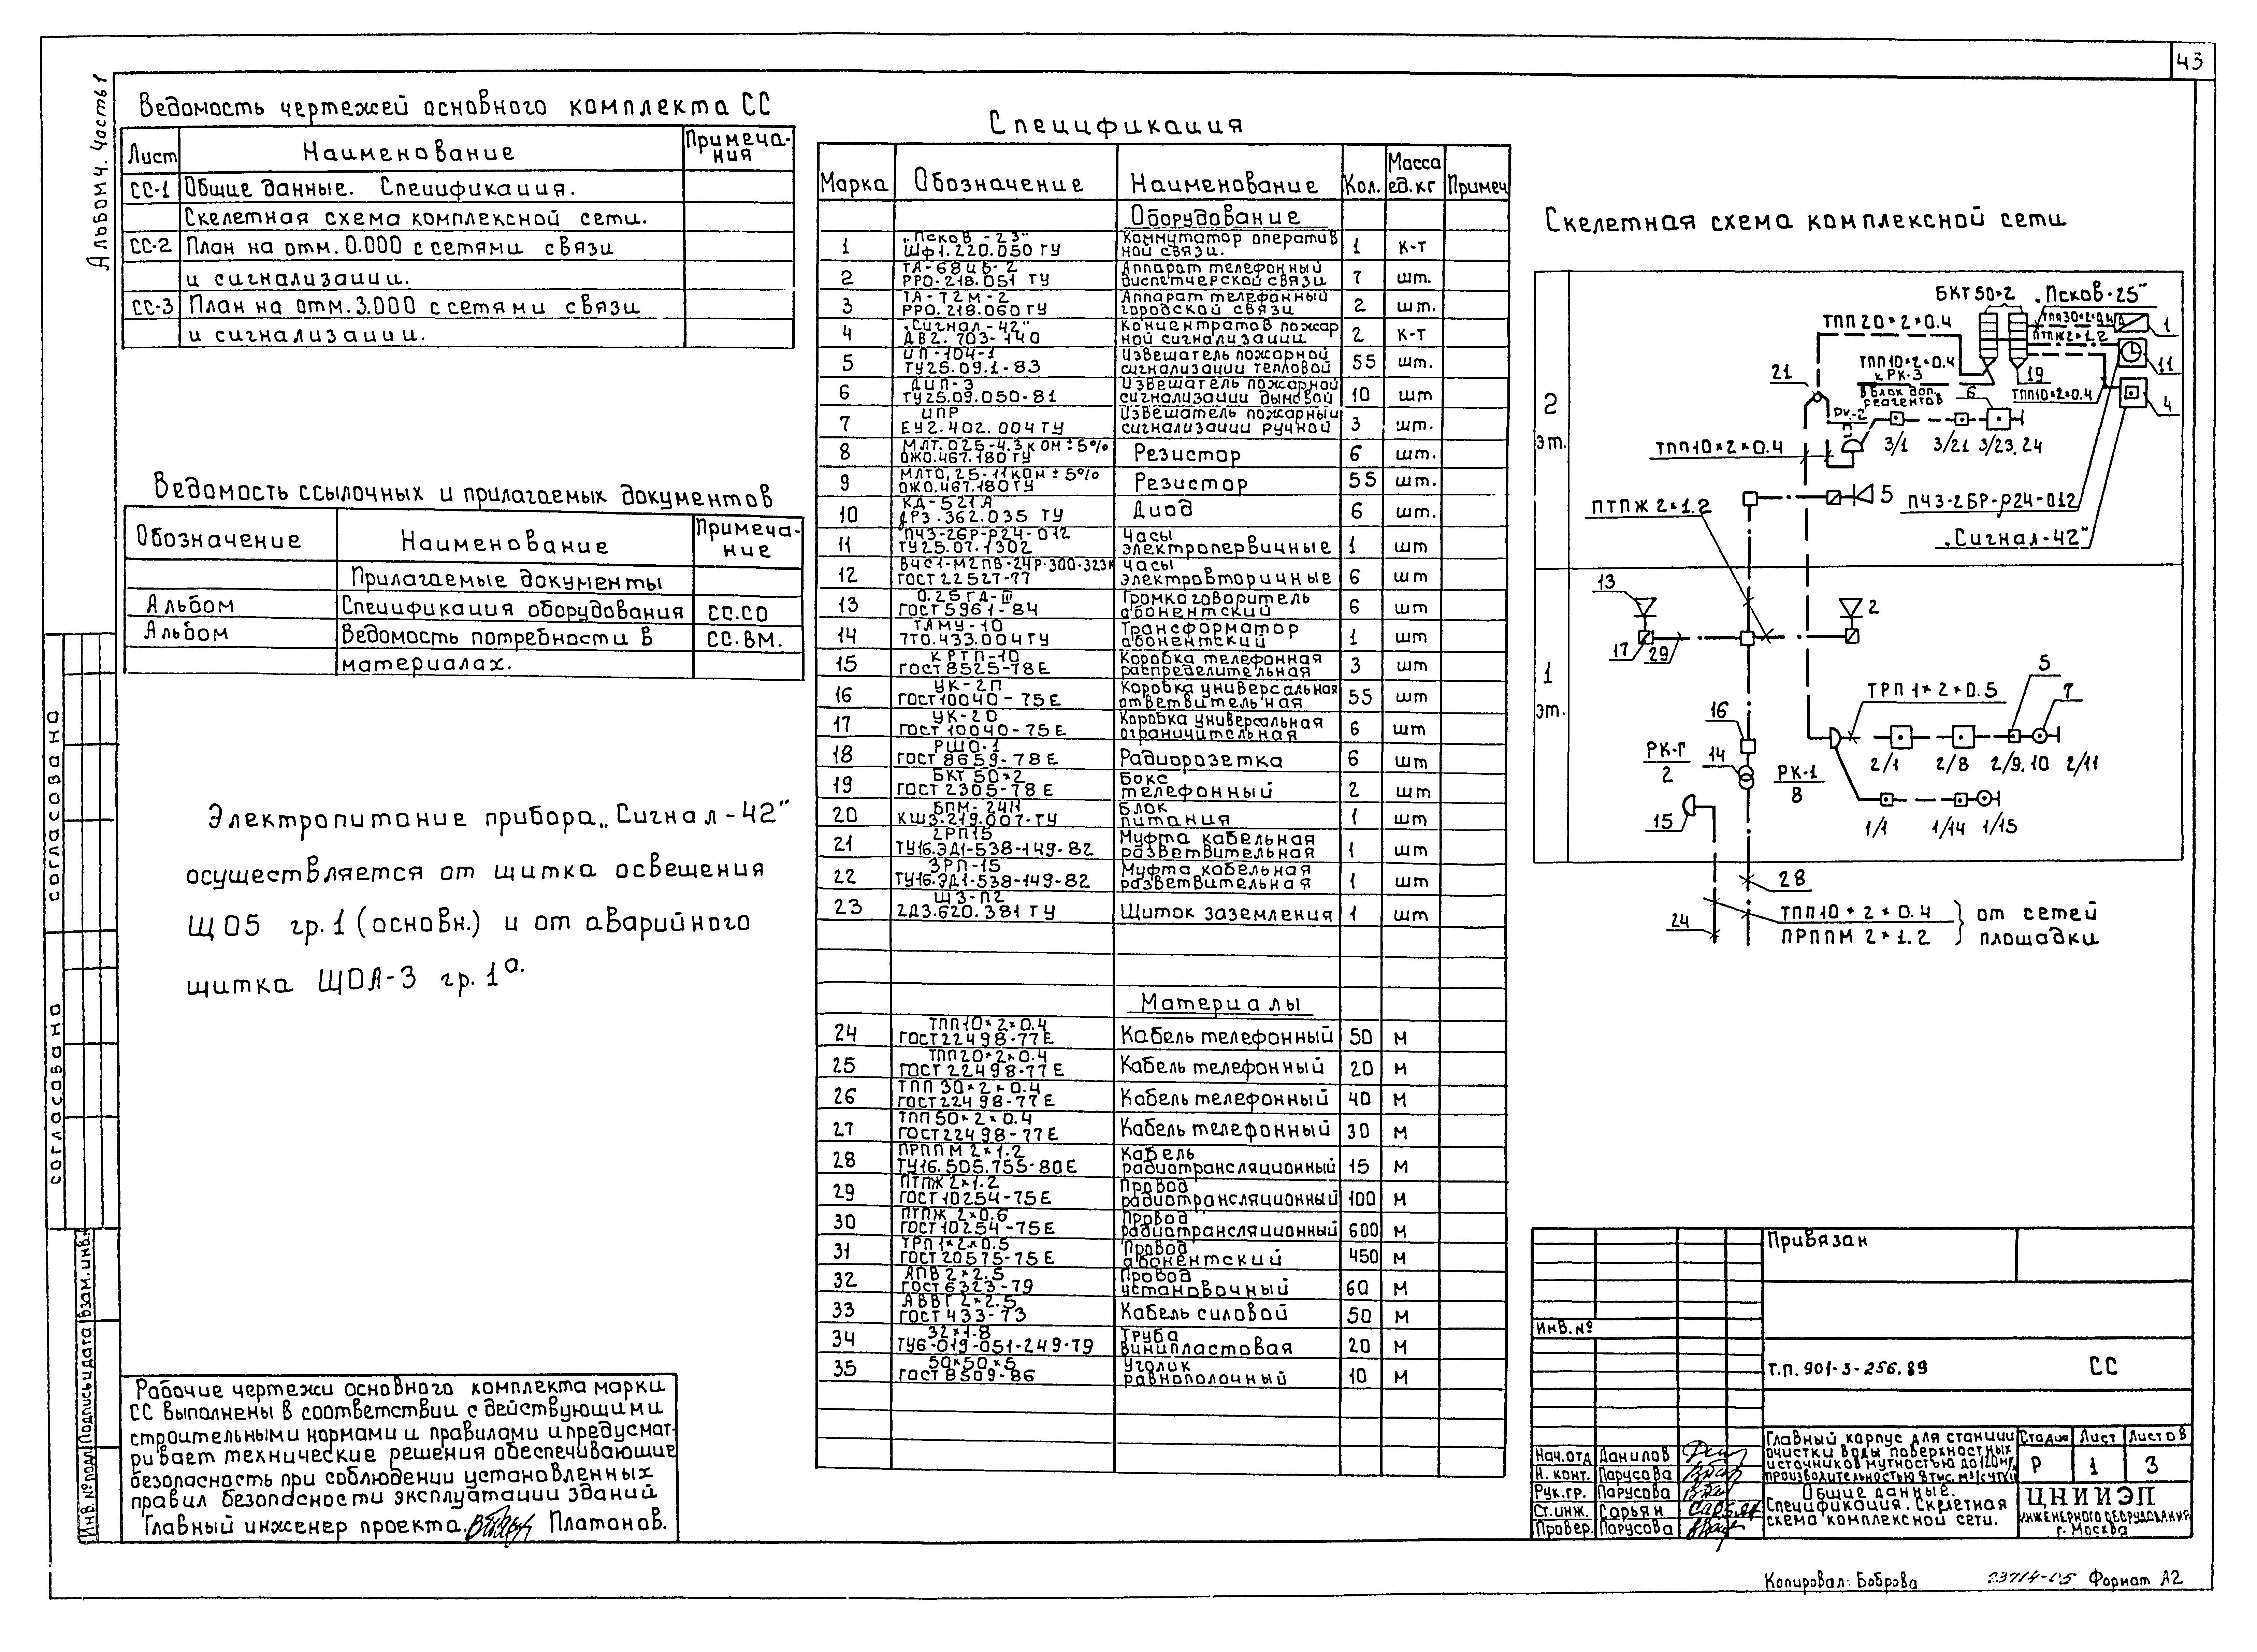 43
Альбом 4. Часть 1
Ведомость чертежей основного комплекта СС
Лист Наименование Примеча-
ния
СС-1 Общие данные. Спецификация.
Скелетная схема комплексной сети.
СС-2 План на отм. 0.000 с сетями связи
и сигнализации.
СС-3 План на отм. 3.000 с сетями связи
и сигнализации.
Ведомость ссылочных и прилагаемых документов
Обозначение Наименование Примеча-
ние
Прилагаемые документы
Альбом Спецификация оборудования СС.СО
Альбом Ведомость потребности в СС.ВМ.
материалах.
Электропитание прибора „Сигнал-42"
осуществляется от щитка освещения
ЩО5 гр.1 (основн.) и от аварийного
щитка ЩОА-3 гр. 1а.
согласовано
согласовано
Взам. инв.
Подпись и дата
Инв. № подл
Рабочие чертежи основного комплекта марки
СС выполнены в соответствии с действующими
строительными нормами и правилами и предусмат-
ривает технические решения обеспечивающие
безопасность при соблюдении установленных
правил безопасности эксплуатации зданий
Главный инженер проекта. Платонов.
Спецификация
Марка Обозначение Наименование Кол. Масса ед.кг Примеч
Оборудование
1 „Псков-23" Шф1.220.050 ТУ Коммутатор оператив ной связи. 1 к-т
2 ТА-68ЦБ-2 РРО.218.051 ТУ Аппарат телефонный диспетчерской связи 7 шт.
3 ТА-72М-2 РРО.218.060 ТУ Аппарат телефонный городской связи 2 шт.
4 „Сигнал-42" ДВ2.703-140 Концентратов пожар ной сигнализации 2 к-т
5 ИП-104-1 ТУ25.09.1-83 Извещатель пожарной сигнализации тепловой 55 шт.
6 ДИП-3 ТУ25.09.050-81 Извещатель пожарной сигнализации дымовой 10 шт
7 ИПР ЕУ2.402.004 ТУ Извещатель пожарный сигнализации ручной 3 шт.
8 МЛТ.025-4.3 к ом ± 5% ОЖО.467.180 ТУ Резистор 6 шт.
9 МЛТ0,25-11 ком ± 5% ОЖО.467.180 ТУ Резистор 55 шт.
10 КД-521А дР3.362.035 ТУ Диод 6 шт.
11 ПЧ3-2БР-Р24-012 ТУ25.07.1302 Часы электропервичные 1 шт
12 ВЧС1-М2ПВ-24Р-300-323К ГОСТ 22527-77 Часы электровторичные 6 шт
13 0.25 ГД-III ГОСТ 5961-84 Громкоговоритель абонентский 6 шт
14 ТАМУ-10 7ТО.433.004 ТУ Трансформатор абонентский 1 шт
15 КРТП-10 ГОСТ 8525-78Е Коробка телефонная распределительная 3 шт
16 УК-2П ГОСТ 10040-75Е Коробка универсальная ответвительная 55 шт
17 УК-2О ГОСТ 10040-75Е Коробка универсальная ограничительная 6 шт
18 РШО-1 ГОСТ 8659-78Е Радиорозетка 6 шт
19 БКТ 50×2 ГОСТ 2305-78Е Бокс телефонный 2 шт
20 КШ3.219.007-ТУ Блок питания 1 шт
21 2РП15 ТУ16.ЭД1-538-149-82 Муфта кабельная разветвительная 1 шт
22 3РП-15 ТУ16.ЭД1-538-149-82 Муфта кабельная разветвительная 1 шт
23 ЩЗ-П2 2ДЗ.620.381 ТУ Щиток заземления 1 шт
Материалы
24 ТПП10×2×0.4 ГОСТ 22498-77Е Кабель телефонный 50 м
25 ТПП20×2×0.4 ГОСТ 22498-77Е Кабель телефонный 20 м
26 ТПП30×2×0.4 ГОСТ 22498-77Е Кабель телефонный 40 м
27 ТПП50×2×0.4 ГОСТ 22498-77Е Кабель телефонный 30 м
28 ПРППМ 2×1.2 ТУ16.505.755-80Е Кабель радиотрансляционный 15 м
29 ПТПЖ 2×1.2 ГОСТ 10254-75Е Провод радиотрансляционный 100 м
30 ПТПЖ 2×0.6 ГОСТ 10254-75Е Провод радиотрансляционный 600 м
31 ТРП 1×2×0.5 ГОСТ 20575-75Е Провод абонентский 450 м
32 АПВ 2×2.5 ГОСТ 6323-79 Провод установочный 60 м
33 АВВГ 2×2.5 ГОСТ 433-73 Кабель силовой 50 м
34 32×1.8 ТУ6-019-051-249-79 Труба винипластовая 20 м
35 50×50×5 ГОСТ 8509-86 Уголик равнополочный 10 м
Скелетная схема комплексной сети
2 эт.
БКТ 50×2 „Псков-25"
ТПП20×2×0.4 ТПП30×2×0.4 1
ПТПЖ 2×1.2
ТПП10×2×0.4
к РК-3
в блок доп. реагентов
21 6 19 ТПП10×2×0.4 11 4
РК-2
ТПП10×2×0.4 3/1 3/21 3/23, 24
ПТПЖ 2×1.2 5 ПЧ3-2БР-Р24-012
„Сигнал-42"
1 эт.
13 2
17 29
ТРП 1×2×0.5 5 7
16
РК-Г
2
14 РК-1
8
2/1 2/8 2/9.10 2/11
15 1/1 1/14 1/15
28
24 ТПП10×2×0.4 от сетей
ПРППМ 2×1.2 площадки
Привязан
Инв. №
Т.П. 901-3-256.89 СС
Нач.отд Данилов
Н. конт. Парусова
Рук.гр. Парусова
Ст.инж. Сарьян
Провер. Парусова
Главный корпус для станции
очистки воды поверхностных
источников мутностью до 120мг/л
производительностью 8 тыс. м³/сутки
Стадия Лист Листов
Р 1 3
Общие данные.
Спецификация. Скелетная
схема комплексной сети.
ЦНИИЭП
инженерного оборудования
г. Москва
Копировал: Боброва 23714-05 Формат А2